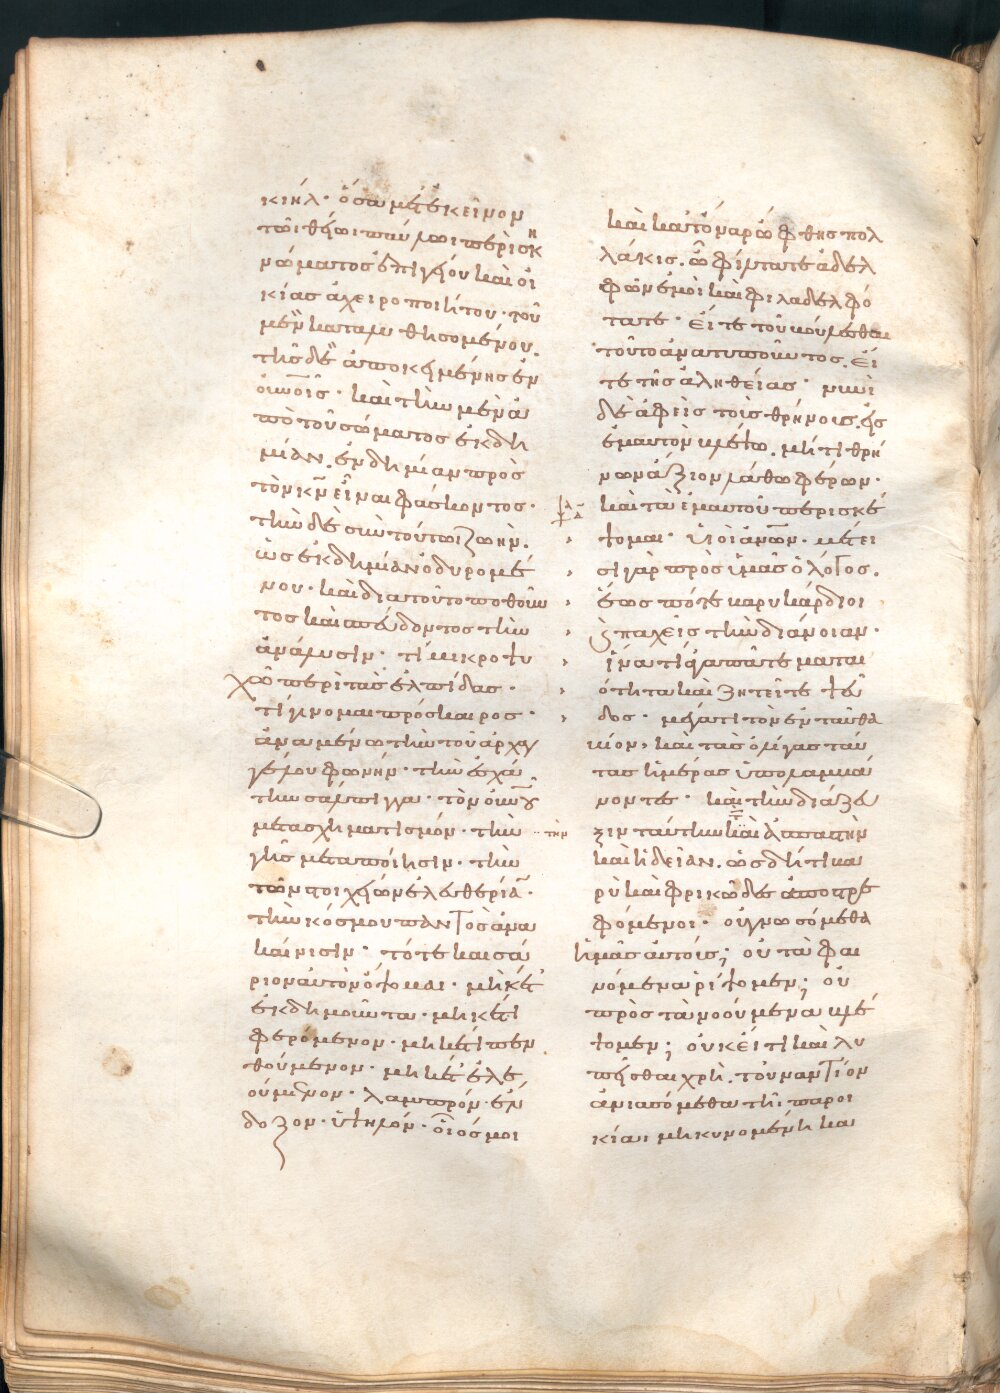 κιήλ· ὅσω μετ' ἐκεῖνον
τῶι θείωι παύλωι περὶ σκη
νώματος ἐπιγείου καὶ οἰ
κίας ἀχειροποιήτου· τοῦ
μὲν καταλυθησομένου.
τῆς δὲ ἀποκειμένης ἐν
οὐνοῖς· καὶ τὴν μὲν ἀ
πὸ τοῦ σώματος ἐκδη
μίαν, ἐνδημίαν πρὸς
τὸν κν εἶναι φάσκοντος·
τὴν δὲ σὺν τούτωι ζωὴν,
ὡς ἐκδημίαν ὀδυρομέ
νου· καὶ διατοῦτο ποθοῦν
τος καὶ σπεύδοντος τὴν
ἀνάλυσιν· τί μικροψυ
χῶ περὶ τὰς ἐλπίδας·
τί γίνομαι πρόσκαιρος·
ἀναμένω τὴν τοῦ ἀρχαγ
γέλου φωνὴν· τὴν ἐσχά
την σάλπιγγα· τὸν οὐνοῦ
μετασχηματισμόν· τὴν
γῆς μεταποίησιν· τὴν
τῶν στοιχείων ἐλευθερίαν·
τὴν κόσμου παντὸς ἀνα
καίνισιν· τότε καισά
ριον αὐτὸν ὄψομαι· μηκέτ'
ἐκδημοῦντα· μηκέτι
φερόμενον· μηκέτι πεν
θούμενον· μηκέτ' ἐλε
ούμενον· λαμπρόν· ἔν
δοξον· ὑψηλόν· οἷος μοι
καὶ κατ' ὄναρ ὤφθης πολ
λάκις. ὦ φίλτατε ἀδελ
φῶν ἐμοὶ καὶ φιλαδελφό
τατε· εἴτε τοῦ βούλεσθαι
τοῦτο ἀνατυποῦντος, εἴ
τε τῆς ἀληθείας· νυνὶ
δὲ ἀφεὶς τοὺς θρήνους, εἰς
ἐμαυτὸν βλέψω, μή τι θρή
νων ἄξιον λάθω φέρων·
καὶ τὰ ἐμαυτοῦ περισκέ
ψομαι· υἱοὶ ἀνων· μέτει
σι γὰρ πρὸς ὑμᾶς ὁ λόγος.
ἕως πότε βαρυκάρδιοι
καὶ παχεῖς τὴν διάνοιαν·
ἵνα τί ἀγαπᾶτε μαται
ότητα καὶ ζητεῖτε ψεῦ
δος· μέγα τι τὸν ἐνταῦθα
βίον, καὶ τὰς ὀλίγας ταύ
τας ἡμέρας ὑπολαμβά
νοντες· καὶ τὴν διάζευ
··τὴν
ξιν ταύτην καὶ ἀσπαστὴν
καὶ ἡδεῖαν, ὡς δή τι βα
ρὺ καὶ φρικῶδες ἀποστρε
φόμενοι· οὐ γνωσόμεθα
ἡμᾶς αὐτούς; οὐ τὰ φαι
νόμενα ῥίψομεν; οὐ
πρὸς τὰ νοούμενα βλέ
ψομεν; οὐκ εἴ τι καὶ λυ
πεῖσθαι χρὴ, τοὐναντίον
ἀνιασόμεθα τῆι παροι
κίαι μηκυνομένηι κα